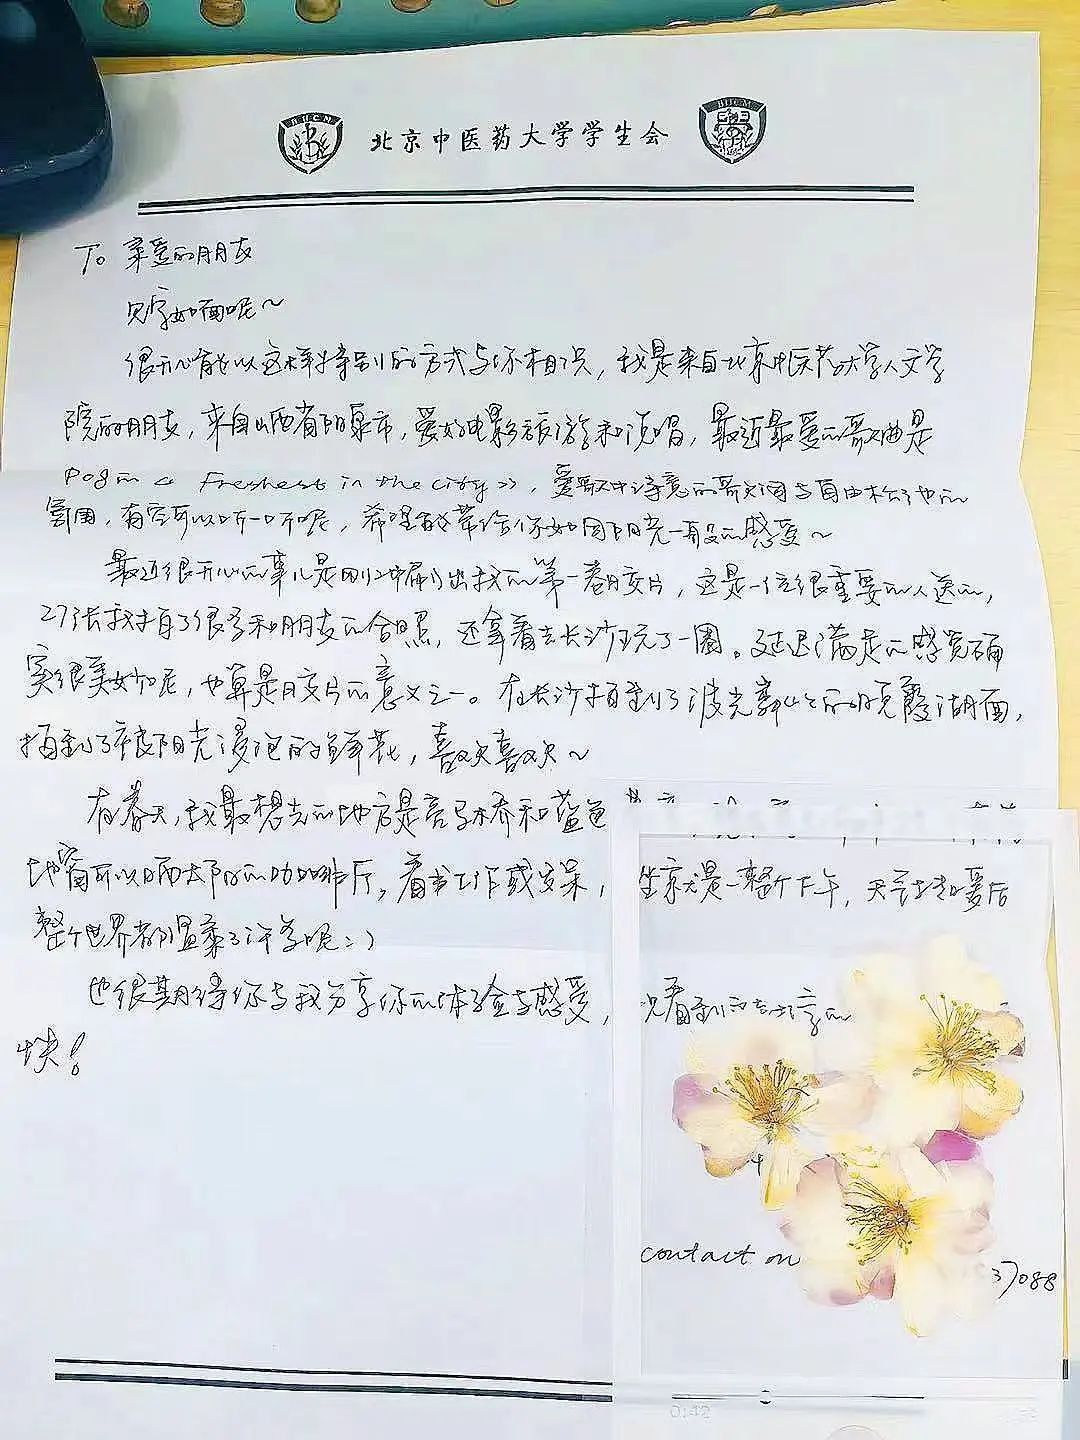 BUCM 北京中医药大学学生会 BUCM
To 亲爱的朋友
见字如面呢~
很开心能以这样特别的方式与你相识，我是来自北京中医药大学人文学
院的朋友，来自山西省阳泉市，爱好电影旅游和说唱，最近最爱的歌曲是
Freshest in the city》，爱歌中诗意的歌词与自由松弛的
氛围，有空可以听一听呢，希望能带给你如同阳光一般的感受~
最近很开心的事儿是刚冲刷出我的第一卷胶片，这是一位很重要的人送的，
27张我拍了很多和朋友的合照，还拿着去长沙玩了一圈。延迟满足的感觉确
实很美妙呢，也算是胶片的意义之一。在长沙拍到了波光粼粼的晚霞湖面，
拍到了被阳光浸泡的鲜花，喜欢喜欢~
在春天，我最想去的地方是亮马桥和蓝色
地窗可以晒太阳的咖啡厅，看书工作或发呆，坐就是一整个下午，天气暖后
整个世界都温柔了许多呢：）
也很期待你与我分享你的体验与感受，祝看到
快！
contact on
37088
0:42